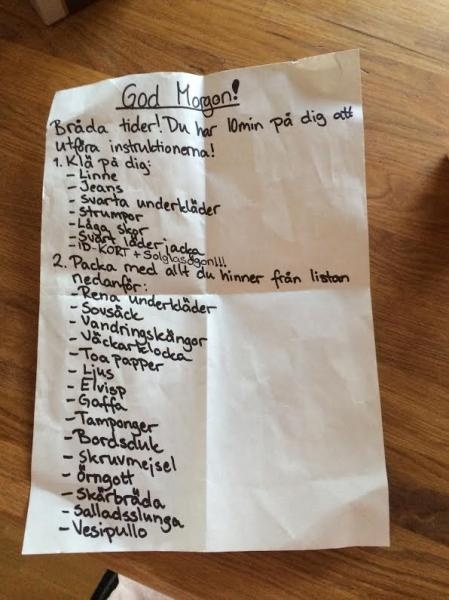 God Morgon!
Bråda tider! Du har 10min på dig att
utföra instruktionerna!
1. Klä på dig:
- Linne
- Jeans
- Svarta underkläder
- Strumpor
- Låga skor
- Svart läderjacka
- ID-KORT + Solglasögon!!!
2. Packa med allt du hinner från listan
nedanför:
- Rena underkläder
- Sovsäck
- Vandringskängor
- Väckarklocka
- Toapapper
- Ljus
- Elvisp
- Gaffa
- Tamponger
- Bordsduk
- Skruvmejsel
- Örngott
- Skärbräda
- Salladsslunga
- Vesipullo